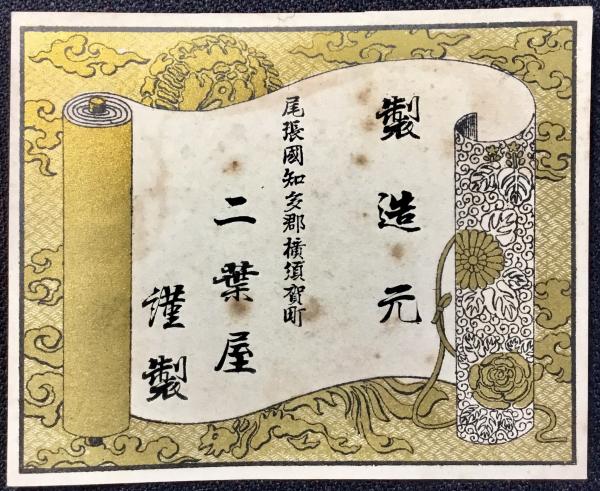 製造元
尾張國知多郡横須賀町
二葉屋
謹製